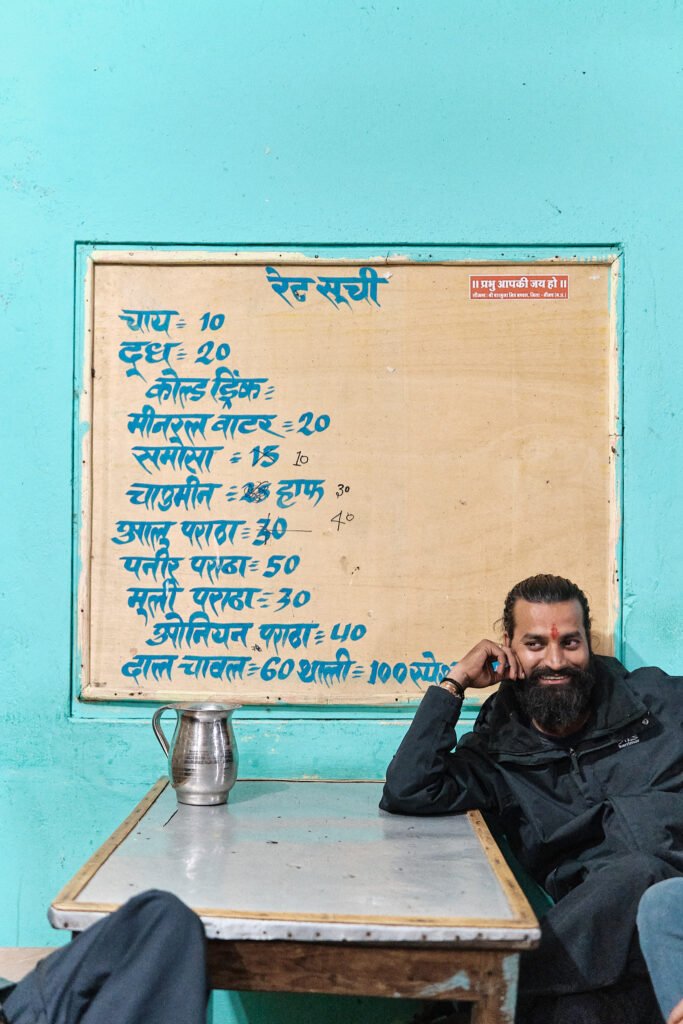 रेट सूची
॥ प्रभु आपकी जय हो ॥
चाय = 10
दूध = 20
कोल्ड ड्रिंक =
मीनरल वाटर = 20
समोसा = 15 10
चाउमीन = हाफ 30
आलू पराठा = 30 40
पनीर पराठा = 50
मूली पराठा = 30
ओनियन पराठा = 40
दाल चावल = 60 थाली = 100